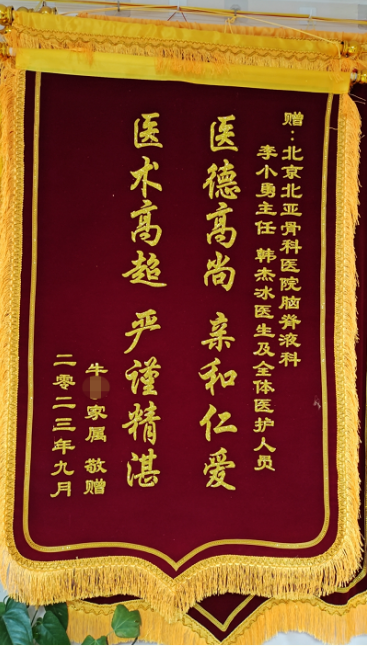 赠：北京北亚骨科医院脑脊液科
李小勇主任 韩杰冰医生及全体医护人员
医德高尚 亲和仁爱
医术高超 严谨精湛
牛 家属 敬赠
二零二三年九月